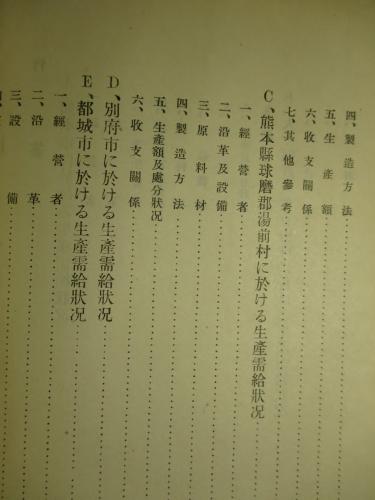 四、製造方法
五、生產額
六、收支關係
七、其他參考
C、熊本縣球磨郡湯前村に於ける生產需給狀況
一、經營者
二、沿革及設備
三、原料材
四、製造方法
五、生產額及處分狀況
六、收支關係
D、別府市に於ける生產需給狀況
E、都城市に於ける生產需給狀況
一、經營者
二、沿革
三、設備